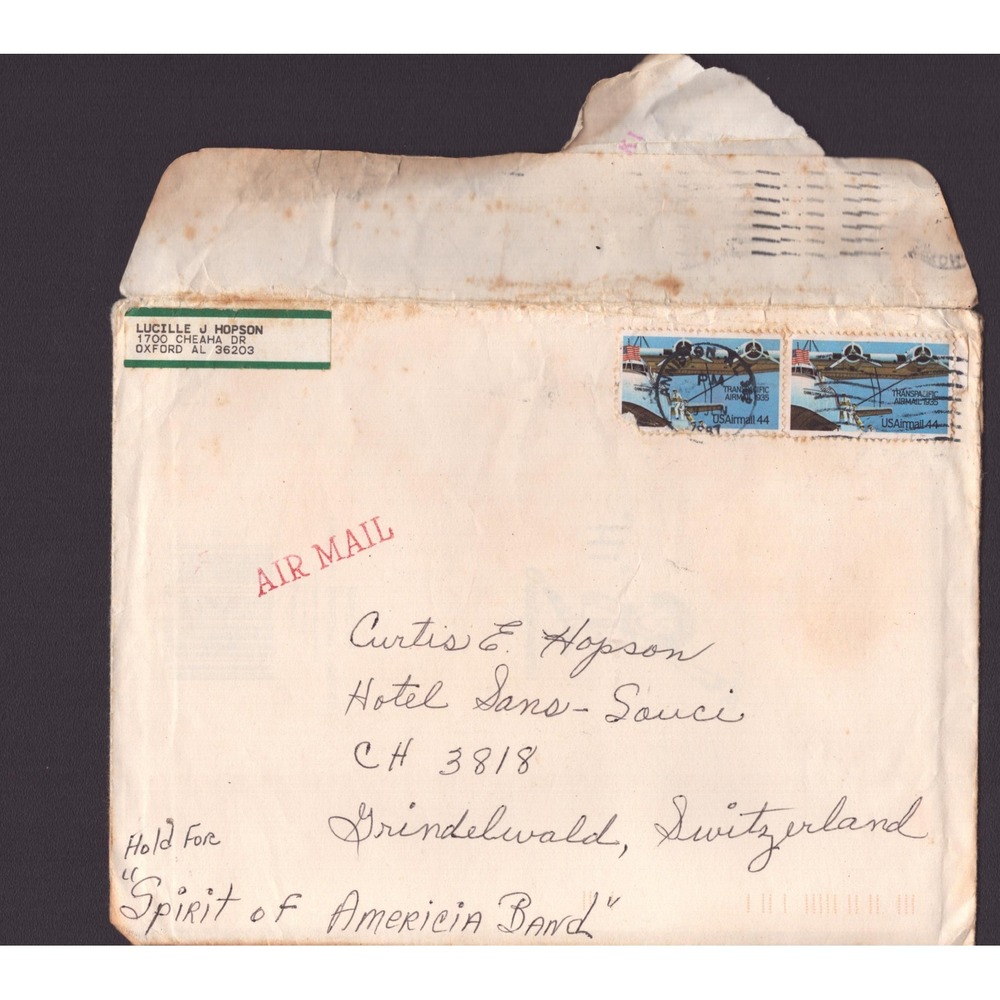 LUCILLE J HOPSON
1700 CHEAHA DR
OXFORD AL 36203
ANNISTON, AL
PM
1987
TRANSPACIFIC
AIRMAIL 1935
USAirmail 44
TRANSPACIFIC
AIRMAIL 1935
USAirmail 44
AIR MAIL
Curtis E. Hopson
Hotel Sans-Souci
CH 3818
Grindelwald, Switzerland
Hold For
"Spirit of Americia Band"